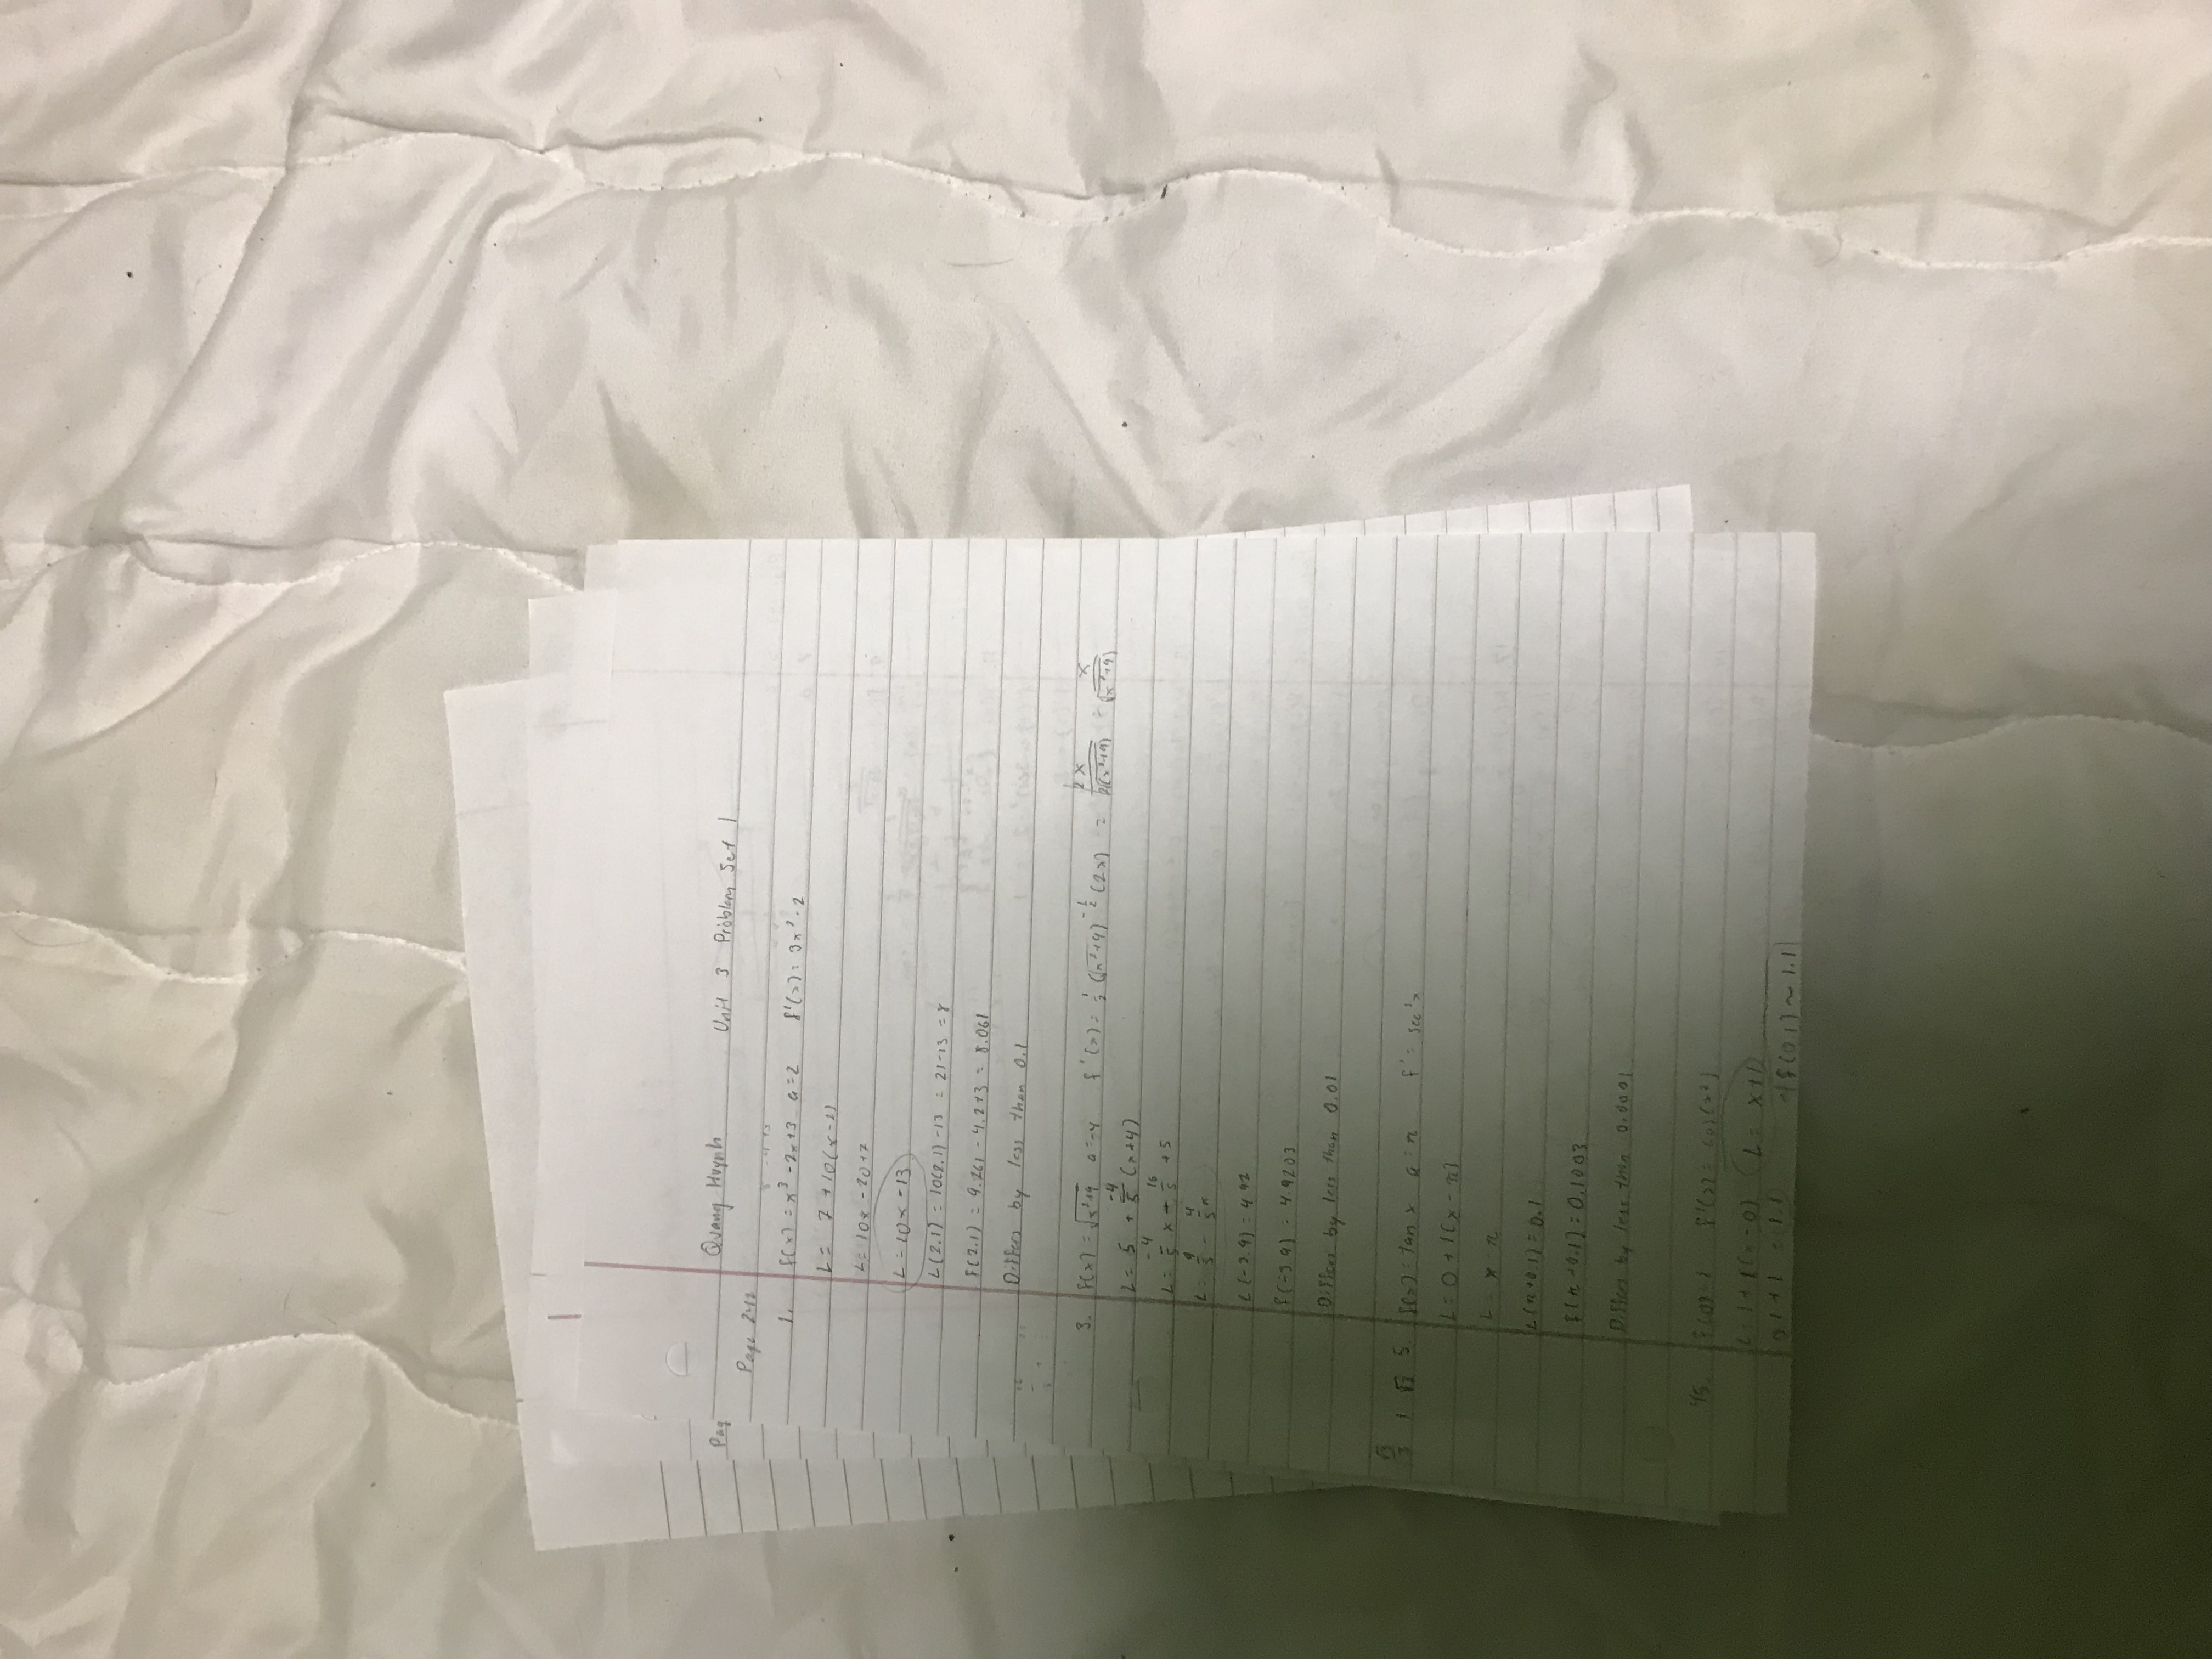 Quang Huynh Unit 3 Problem Set 1
Pag
Page 242
1. f(x) = x³ - 2x + 3 a = 2 f'(x) = 3x² - 2
L = 7 + 10(x - 2)
L = 10x - 20 + 7
L = 10x - 13
L(2.1) = 10(2.1) - 13 = 21 - 13 = 8
f(2.1) = 9.261 - 4.2 + 3 = 8.061
Differs by less than 0.1
3. f(x) = √(x²+9) a = -4 f'(x) = 1/2 (√x²+9)^(-1/2) (2x) = 2x/2√(x²+9) = x/√(x²+9)
L = 5 + -4/5 (x+4)
L = -4/5 x - 16/5 + 5
L = 9/5 - 4/5 x
L(-3.9) = 4.92
f(-3.9) = 4.9203
Differs by less than 0.01
√3/3 , √3 5. f(x) = tan x a = π f' = sec²x
L = 0 + 1(x - π)
L = x - π
L(π+0.1) = 0.1
f(π+0.1) = 0.1003
Differs by less than 0.0001
45. f(0) = 1 f'(x) = cos(x²)
L = 1 + 1(x - 0) L = x+1
0.1+1 = 1.1 f(0.1) ~ 1.1